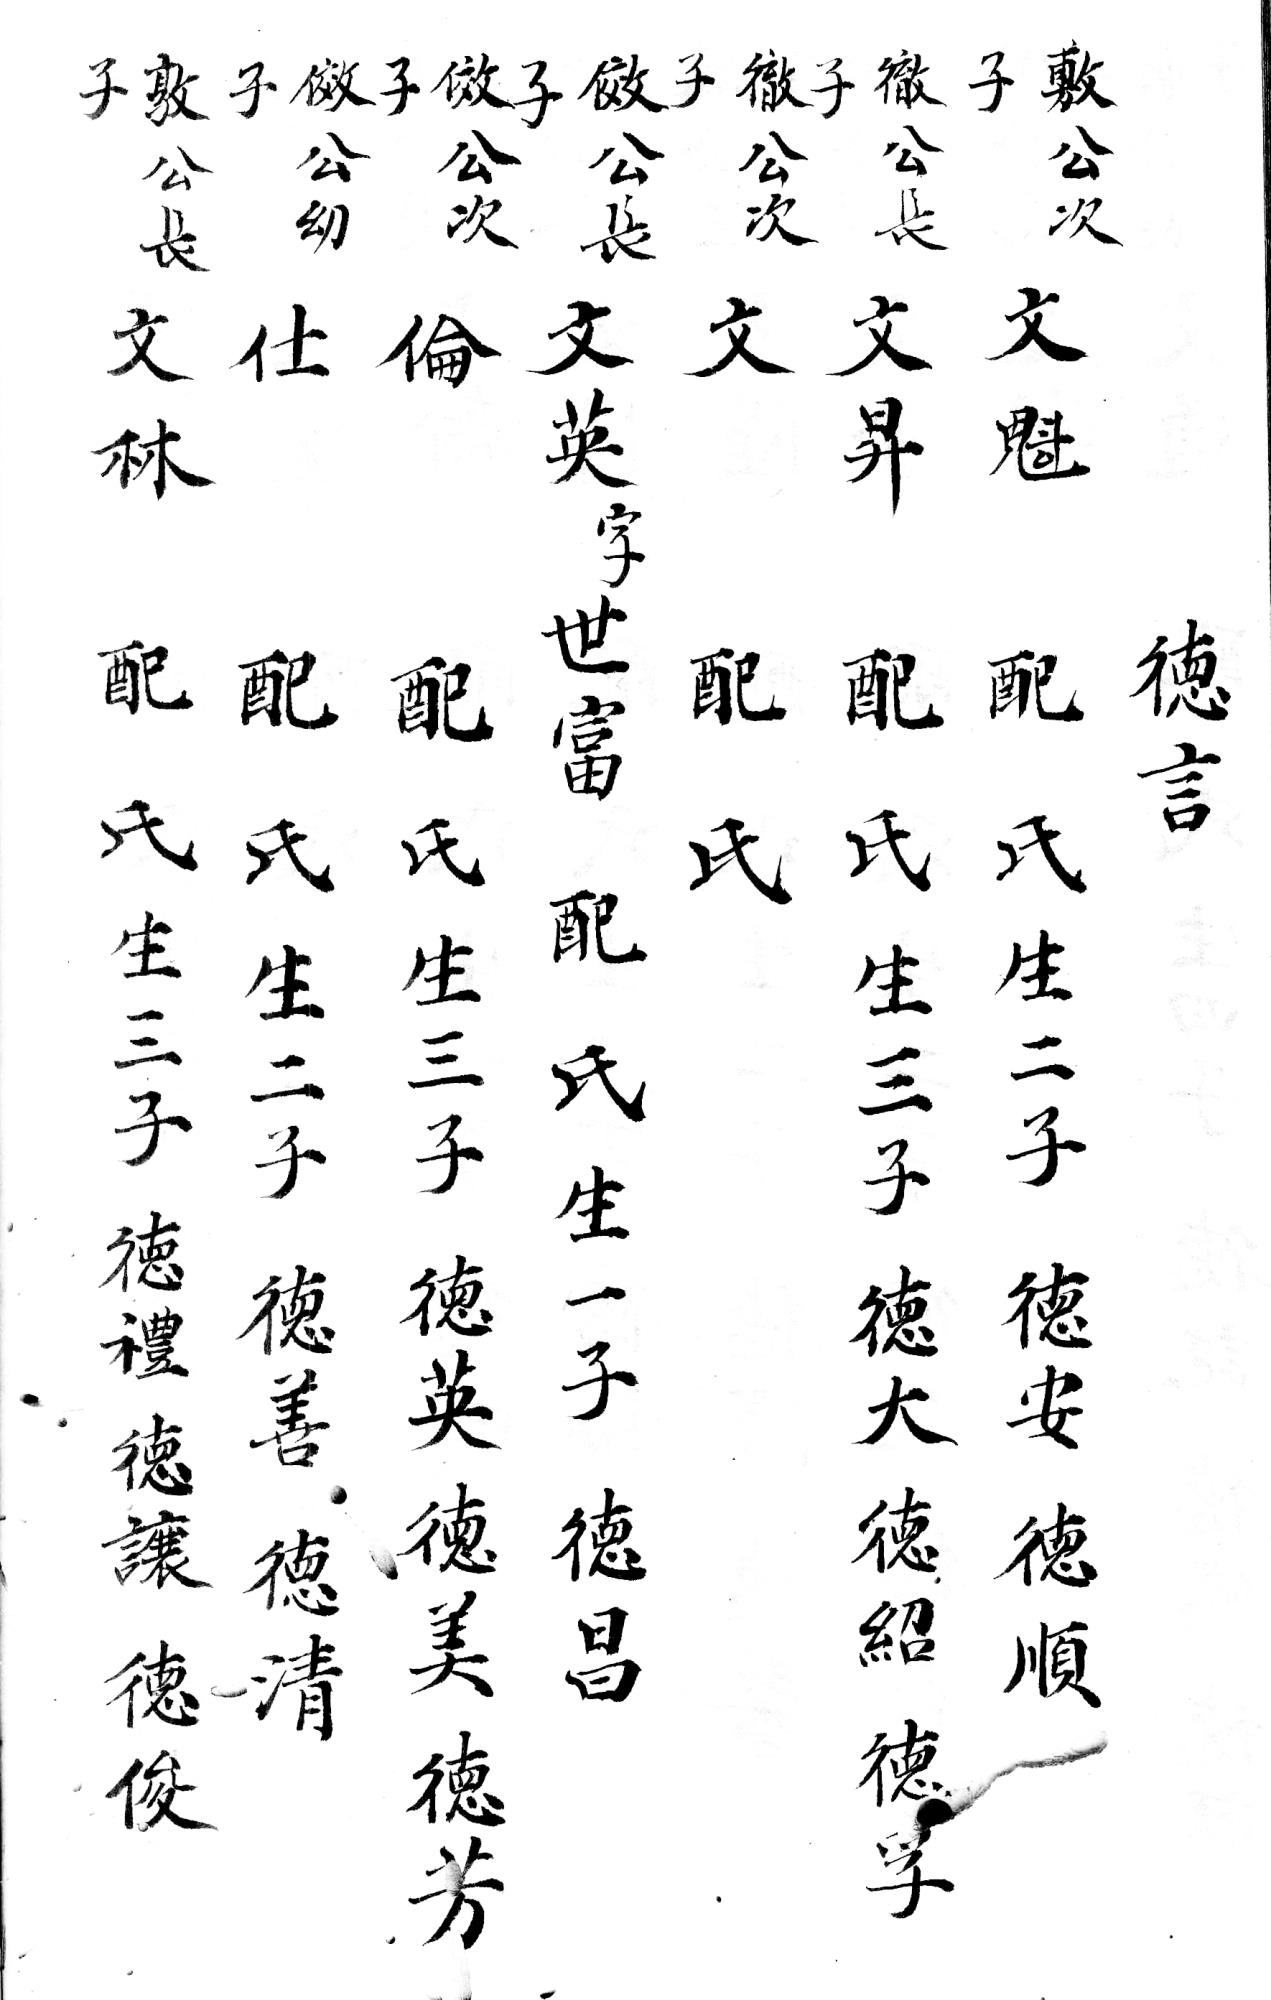 德言
敷公次子 文魁 配 氏生二子 德安 德順
徹公長子 文昇 配 氏生三子 德大 德紹 德孚
徹公次子 文 配 氏
倣公長子 文英 字世富 配 氏生一子 德昌
倣公次子 倫 配 氏生三子 德英 德美 德芳
倣公幼子 仕 配 氏生二子 德善 德清
敦公長子 文林 配 氏生三子 德禮 德讓 德俊